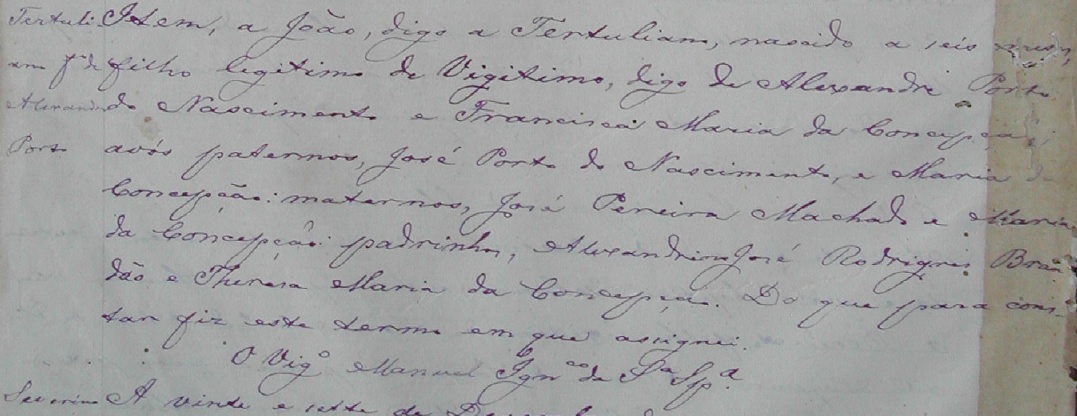 Tertuli Item, a João, digo a Tertuliam, nascido a seis mezes,
am fº de filho legitimo de Vigitimo, digo de Alexandre Porto
Alexandre do Nascimento e Francisca Maria da Concepção;
Porto avós paternos, José Porto do Nascimento, e Maria da
Concepção: maternos, José Pereira Machado e Maria
da Concepção: padrinhos, Alexandrino José Rodrigues Bran
dão e Theresa Maria da Concepção. Do que para cons-
tar fiz este termo em que assignei.
O Vigº Manuel Ignco da Sª Spª
Severino A vinte e sette de